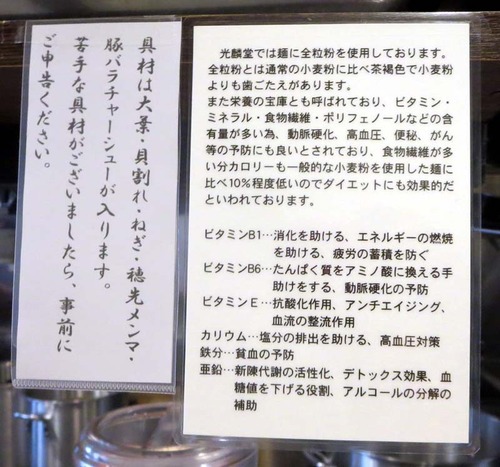 具材は大葉・貝割れ・ねぎ・穂先メンマ・
豚バラチャーシューが入ります。
苦手な具材がございましたら、事前に
ご申告ください。
光麟堂では麺に全粒粉を使用しております。
全粒粉とは通常の小麦粉に比べ茶褐色で小麦粉
よりも歯ごたえがあります。
また栄養の宝庫とも呼ばれており、ビタミン・
ミネラル・食物繊維・ポリフェノールなどの含
有量が多い為、動脈硬化、高血圧、便秘、がん
等の予防にも良いとされており、食物繊維が多
い分カロリーも一般的な小麦粉を使用した麺に
比べ10%程度低いのでダイエットにも効果的だ
といわれております。
ビタミンB1…消化を助ける、エネルギーの燃焼
を助ける、疲労の蓄積を防ぐ
ビタミンB6…たんぱく質をアミノ酸に換える手
助けをする、動脈硬化の予防
ビタミンE…抗酸化作用、アンチエイジング、
血流の整流作用
カリウム…塩分の排出を助ける、高血圧対策
鉄分…貧血の予防
亜鉛…新陳代謝の活性化、デトックス効果、血
糖値を下げる役割、アルコールの分解の
補助